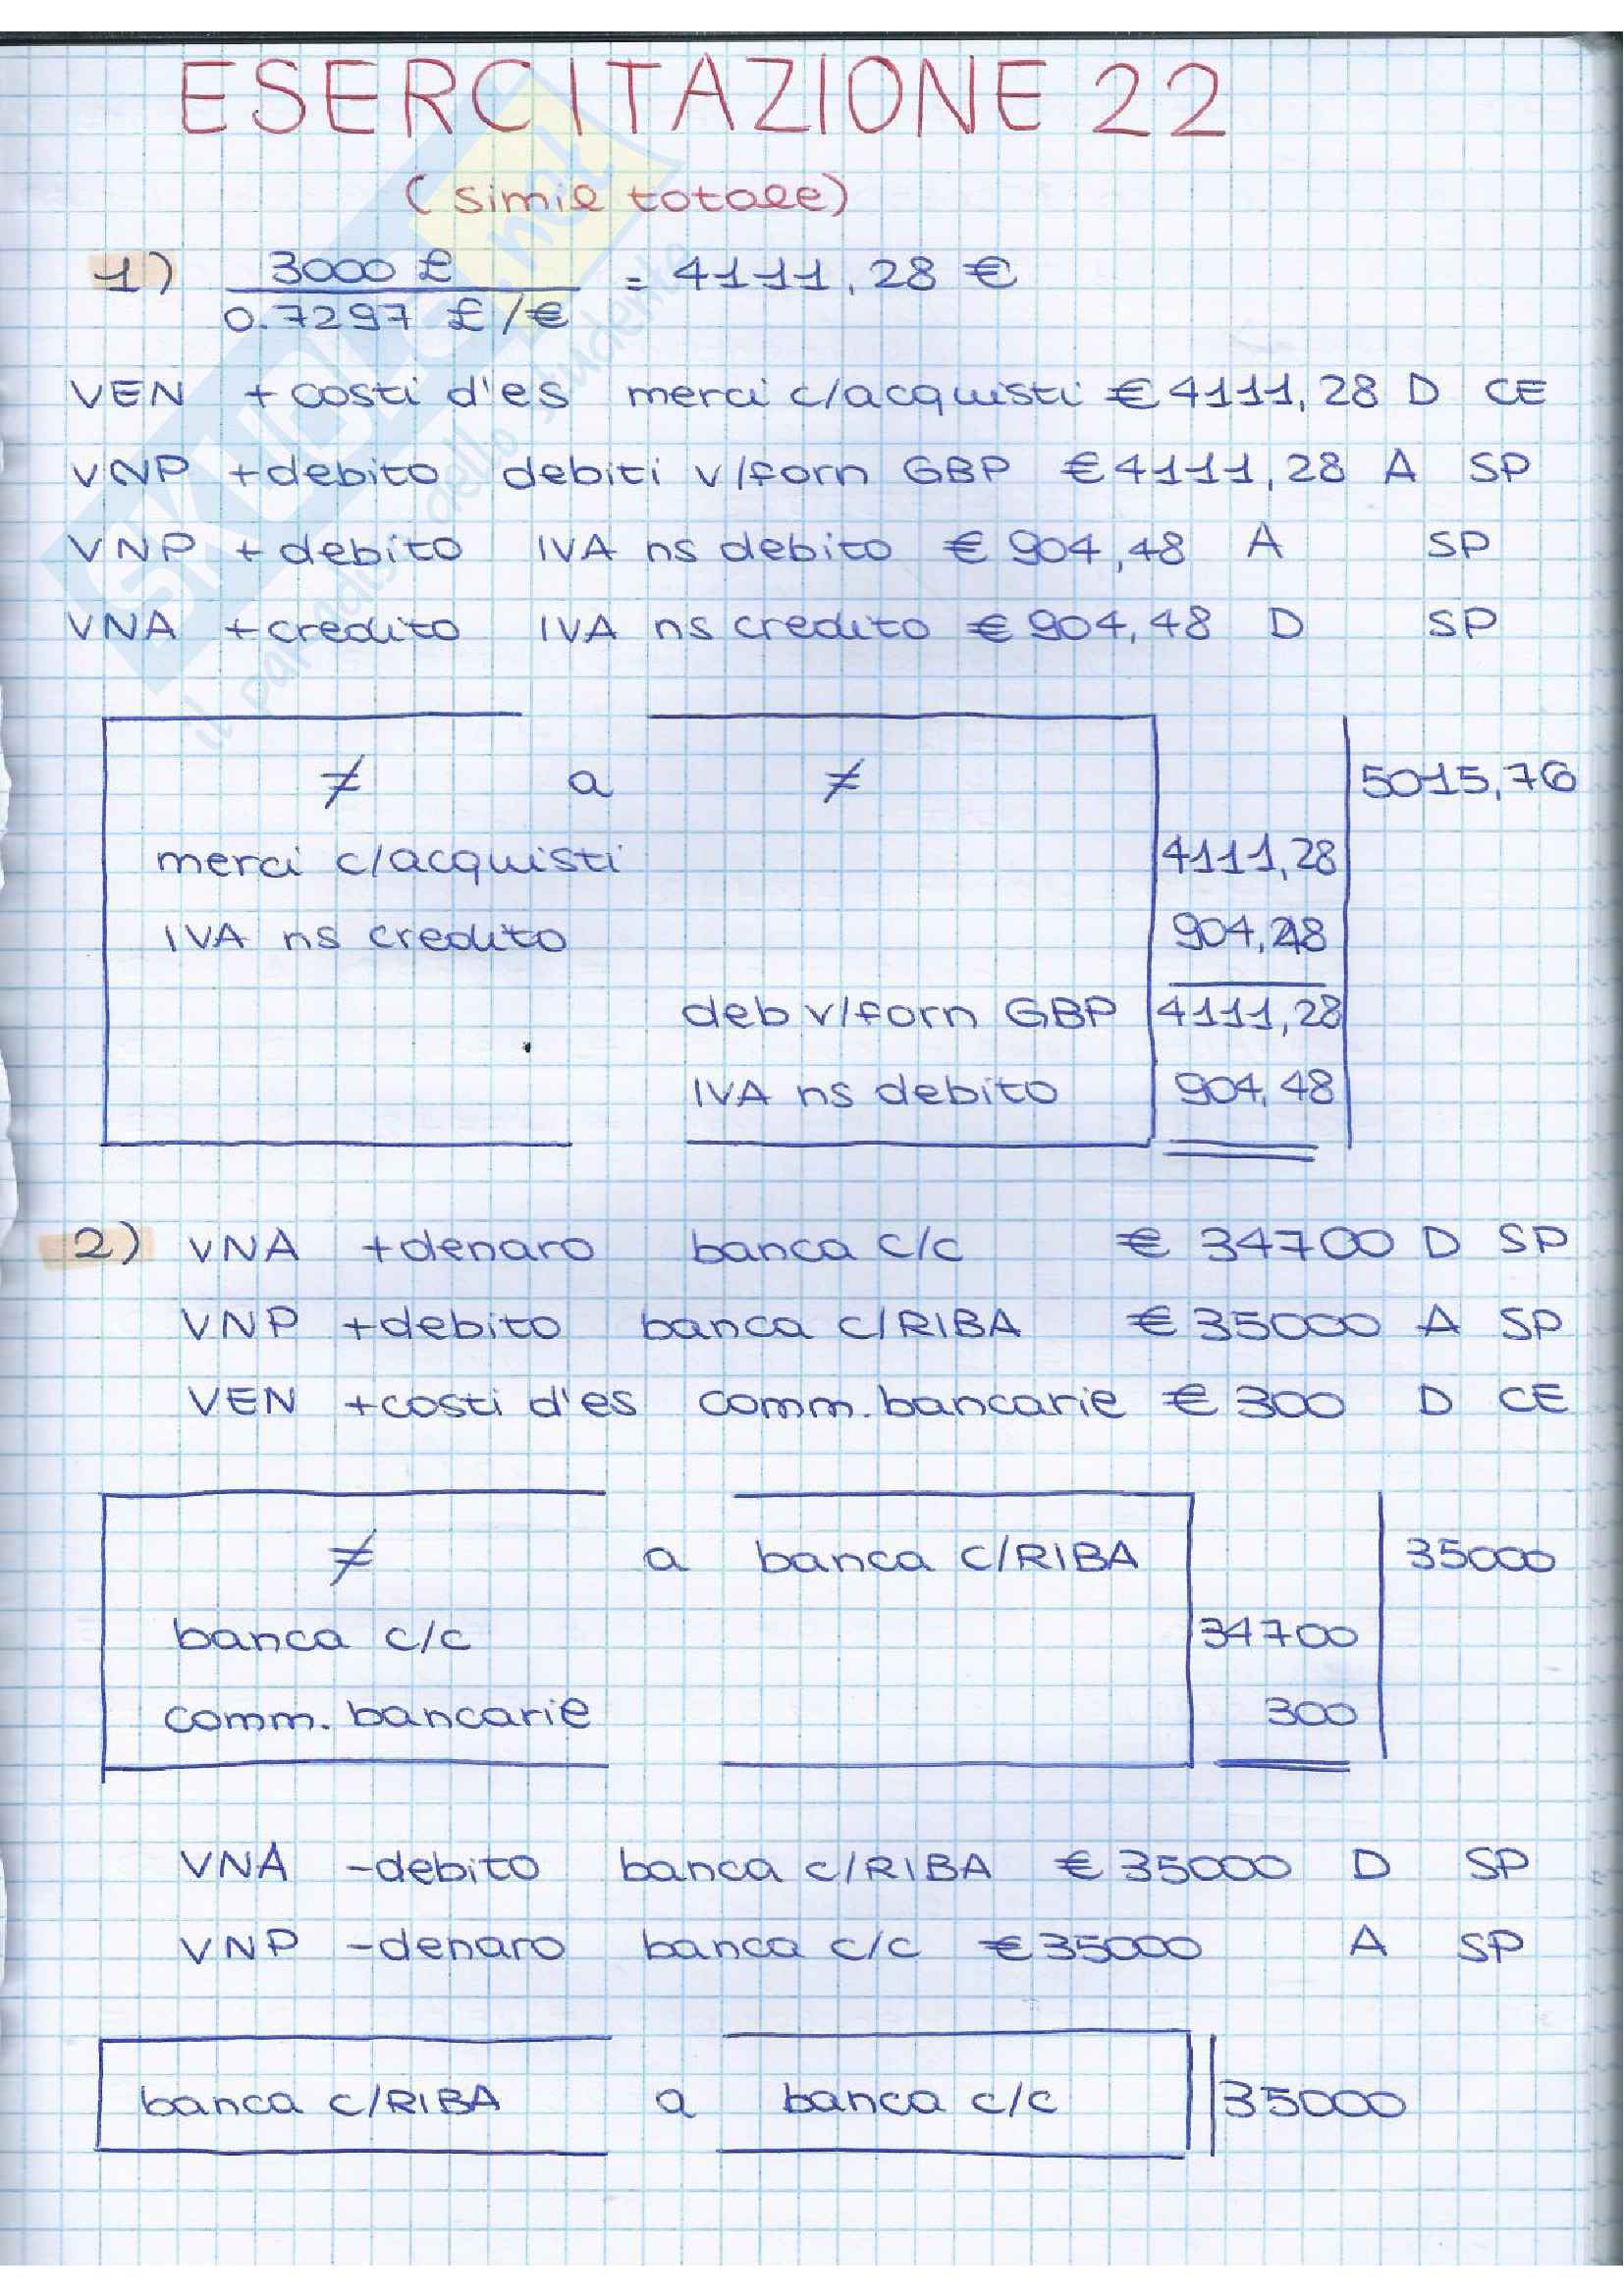 ESERCITAZIONE 22
(simil totale)
1) 3000 £ / 0.7297 £/€ = 4111,28 €
VEN + costi d'es merci c/acquisti € 4111,28 D CE
VNP + debito debiti v/forn GBP € 4111,28 A SP
VNP + debito IVA ns debito € 904,48 A SP
VNA + credito IVA ns credito € 904,48 D SP
≠ a ≠ 5015,76
merci c/acquisti 4111,28
IVA ns credito 904,48
deb v/forn GBP 4111,28
IVA ns debito 904,48
2) VNA + denaro banca c/c € 34700 D SP
VNP + debito banca c/RIBA € 35000 A SP
VEN + costi d'es comm. bancarie € 300 D CE
≠ a banca c/RIBA 35000
banca c/c 34700
comm. bancarie 300
VNA - debito banca c/RIBA € 35000 D SP
VNP - denaro banca c/c € 35000 A SP
banca c/RIBA a banca c/c 35000
SKUOLA.net
il paradiso dello studente